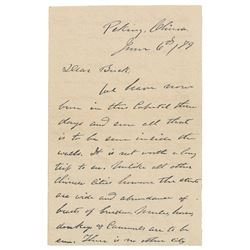 Peking, China
June 6th /89
Dear Buck,
We have now
been in this Capital three
days and seen all that
is to be seen inside the
walls. It is not worth a long
trip to see. Unlike all other
Chinese Cities however the streets
are wide and abundance of
beasts of burden, Mules, horses,
donkeys & Camels are to be
seen. There is no other city